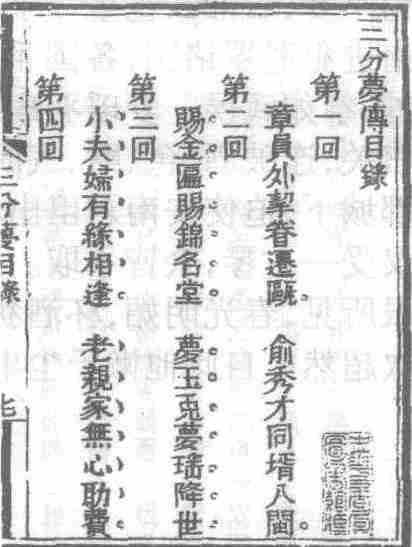 三分夢傳目錄
第一回
章員外挈眷遷甌　俞秀才同壻入閩
第二回
賜金匾賜錦名堂　夢玉兎夢瑤降世
第三回
小夫嬬有緣相逢　老親家無心助費
第四回
三分夢目錄
七